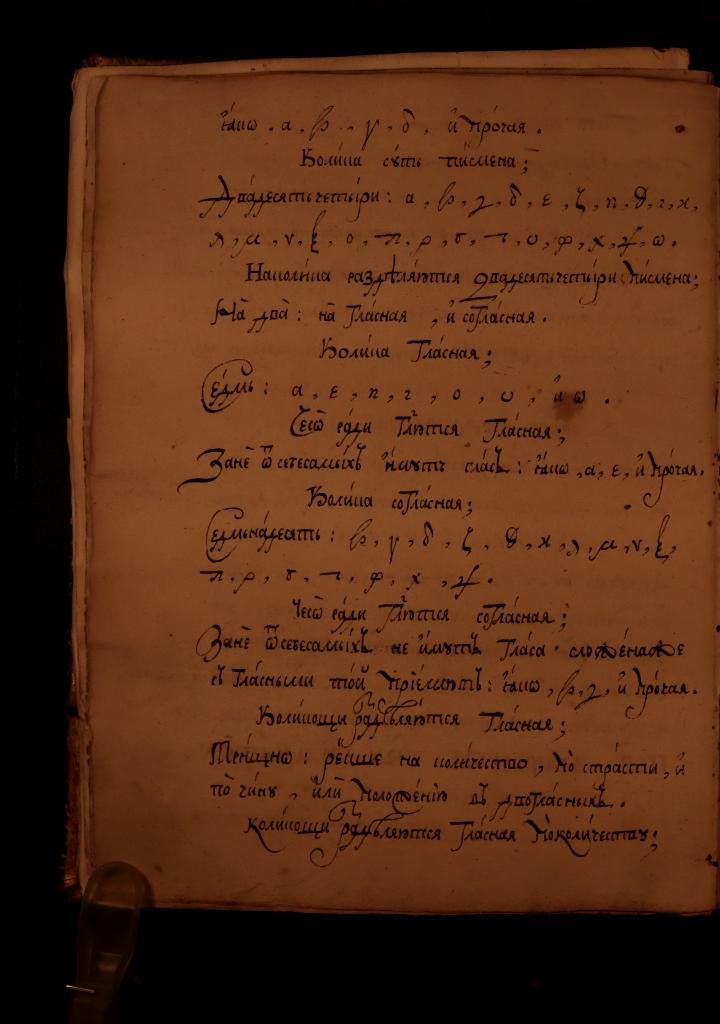 ꙗ́кѡ . α , β , γ , δ , и҆ про́чаѧ .
Коли́ка сꙋ́ть пи́смена ;
Два́десѧть четы́ри : α , β , γ , δ , ε , ζ , η , θ , ι , κ ,
λ , μ , ν , ξ , ο , π , ρ , σ , τ , υ , φ , χ , ψ , ω .
На коли́ка раздѣлѧ́ютсѧ двадесѧть четы́ри пи́смена ;
На̀ два̀ : на̀ гла́снаѧ , и҆ согла́снаѧ .
Коли́ка гла́снаѧ ;
Се́дмь : α , ε , η , ι , ο , υ , и҆ ω .
Чесѡ̀ ра́ди гл҃ютсѧ гла́снаѧ ;
Занѐ ѿ себе самы́хъ и҆́мꙋть гла́съ : ꙗ́кѡ , α , ε , и҆ про́чаѧ .
Коли́ка согла́снаѧ ;
Се́дмьна́десѧть : β , γ , δ , ζ , θ , κ , λ , μ , ν , ξ ,
π , ρ , σ , τ , φ , χ , ψ .
Чесѡ̀ ра́ди гл҃ютсѧ согла́снаѧ ;
Занѐ ѿ себе самы́хъ не и҆́мꙋтъ гла́са . сложе́наже
съ гла́сными то́й прїе́млютъ : ꙗ́кѡ , β , γ , и҆ про́чаѧ .
Коли́кощи раздѣлѧ́ютсѧ гла́снаѧ ;
Трѝщно : ре́кше на коли́чество , по стра́сти , и҆
по чи́нꙋ , и҆лѝ положе́нїю въ двогла́сныхъ .
Коли́кощи раздѣлѧ́ютсѧ гла́снаѧ по коли́чествꙋ ;